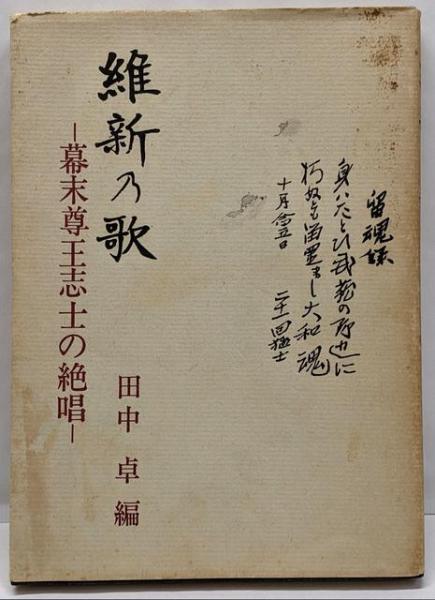 留魂録
身ハたとひ武蔵の野辺に
朽ぬとも留置まし大和魂
十月念五日 二十一回猛士
維新乃歌
―幕末尊王志士の絶唱―
田中 卓 編